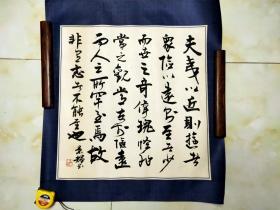 夫夷以近则游者
众险以远则至者少
而世之奇伟瑰怪非
常之观常在于险远
而人之所罕至焉故
非有志者不能至也